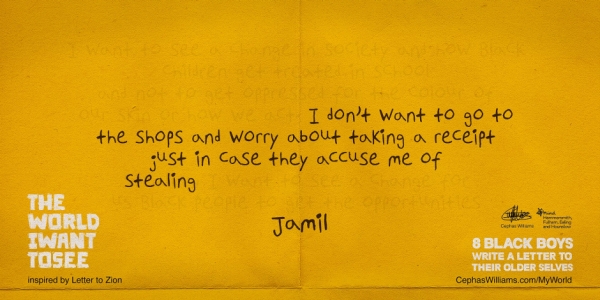 I want to see a change in society and how Black
children get treated in school
and not to get oppressed for the colour of
skin or how we act. I don't want to go to
the shops and worry about taking a receipt
just in case they accuse me of
stealing I want to see change
Black people to get the opportunities
Jamil
THE
WORLD
I WANT
TO SEE
inspired by Letter to Zion
Cephas Williams
Mind
Hammersmith,
Fulham, Ealing
and Hounslow
8 BLACK BOYS
WRITE A LETTER TO
THEIR OLDER SELVES
CephasWilliams.com/MyWorld